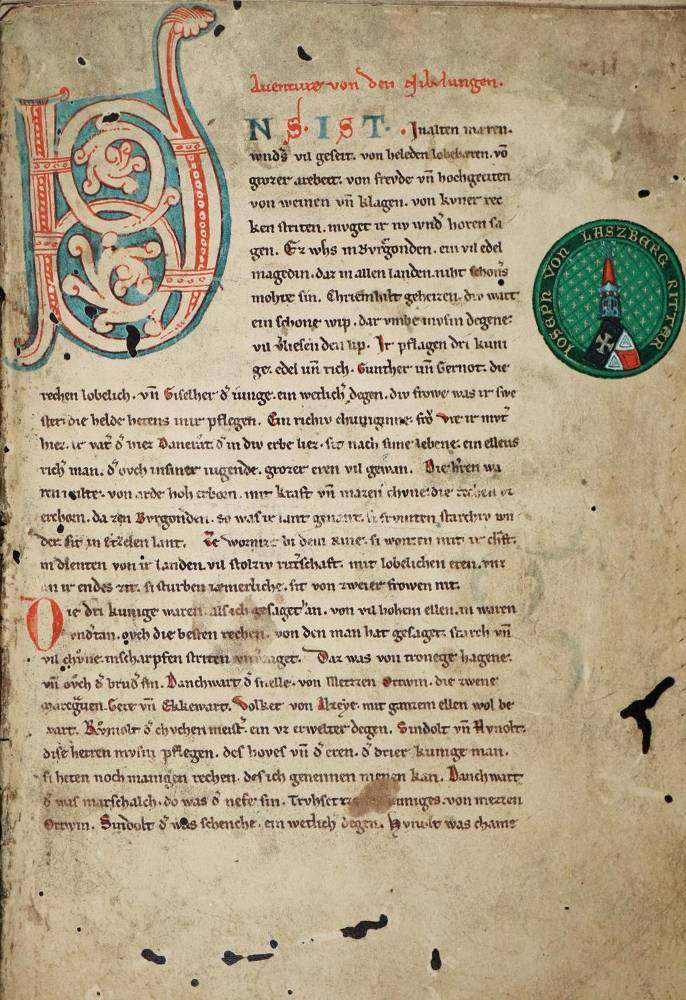 Auenture von den Nibelungen.
VNS. IST. In alten mæren.
wnds vil geseit. von heleden lobebæren. vō
grozer arebeit. von frevde vn̄ hochgeciten
von weinen vn̄ klagen. von kvner rec
ken striten. mvget ir nv wnd horen sa
gen. Ez whs in Bvrgonden. ein vil edel
magedin. daz in allen landen. niht schoners
mohte sin. Chriemhilt geheizen. div wart
ein schone wip. dar vmbe mvsin degene.
vil verliesen den lip. Ir pflagen dri kuni
ge. edel vn̄ rich. Gunther vn̄ Gernot. die
rechen lobelich. vn̄ Giselher d iunge. ein wetlich degen. div frowe was ir swe
ster. die helde hetens inir pflegen. Ein richiv chuniginne. fro vte ir mvt
hiez. ir vat d hiez Dancrat. d in div erbe liez. sit nach sime lebene. ein ellens
rich man. d ovch insiner iugende. grozer eren vil gewan. Die herren wa
ren milte. von arde hoh erborn. mit kraft vn̄ mazen chvne. die rechen vz
erchorn. da zen Bvrgonden. so was ir lant genant. si frumten starchiv wn
der. sit in Etzelen lant. Ze wormze bi dem Rine. si wonten mit ir chraft.
in dienten von ir landen. vil stolziv ritterschaft. mit lobelichen eren. vnz
an ir endes zit. si sturben iæmerliche. sit von zweier frowen nit.
Die dri kunige waren. als ich gesaget han. von vil hohem ellen. in waren
vndertan. ovch die besten rechen. von den man hat gesaget. starch vn̄
vil chvne. in scharpfen striten vnverzaget. Daz was von tronege hagene.
vn̄ ovch d brud sin. Danchwart d snelle. von Metzzen Ortwin. die zwene
Marcgraven. Gere vn̄ Ekkewart. Volker von Alzeye. mit ganzem ellen wol be
wart. Rvmolt d chvchen meist. ein vz erwelter degen. Sindolt vn̄ Hvnolt.
dise herren mvsin pflegen. des hoves vn̄ d eren. d drier kunige man.
si heten noch manigen rechen. des ich genennen nienen kan. Danchwart
d was marschalch. do was d nefe sin. Trvhsetze kuniges. von metzen
Ortwin. Sindolt d was schenche. ein wetlich degen. Hvnolt was chame
IOSEPH VON LASZBERG RITTER